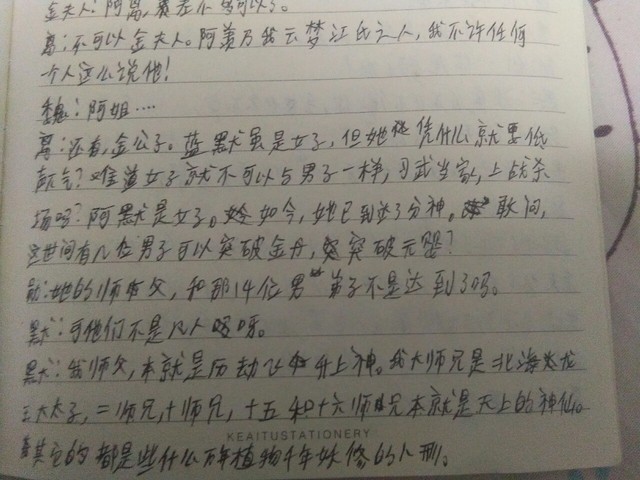 金夫人：阿离，养差不多可以了。
离：不可以金夫人。阿羡乃我云梦江氏之人，我不许任何
个人这么说他！
魏：阿姐....
离：还有，金公子。蓝默虽是女子，但她凭什么就要低
声气？难道女子就不可以与男子一样，习武当家，上战杀
场吗？阿默是女子。如今，她已到达了分神。敢问，
这世间有几位男子可以突破金丹，突破元婴？
她的师父，和那14位男弟子不是达到了吗。
默：可他们不是凡人呀。
默：我师父，本就是历劫飞升上神。我大师兄是北海龙
三太子，二师兄，十师兄，十五和十六师兄本就是天上的神仙。
KEAITUSTATIONERY
其它的都是些什么万年植物千年妖修的人形。